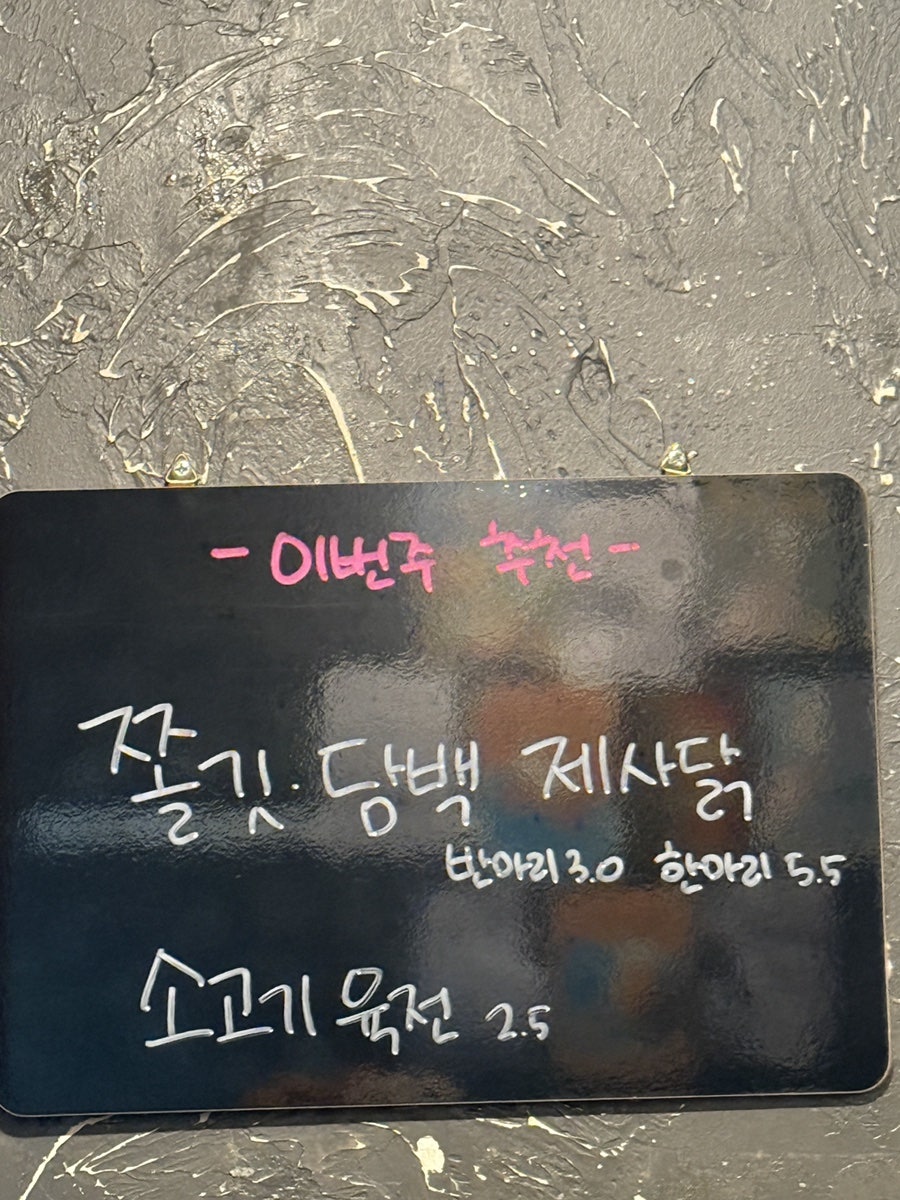 - 이번주 추천 -
쫄깃·담백 제사닭
반마리 3.0 한마리 5.5
소고기 육전 2.5